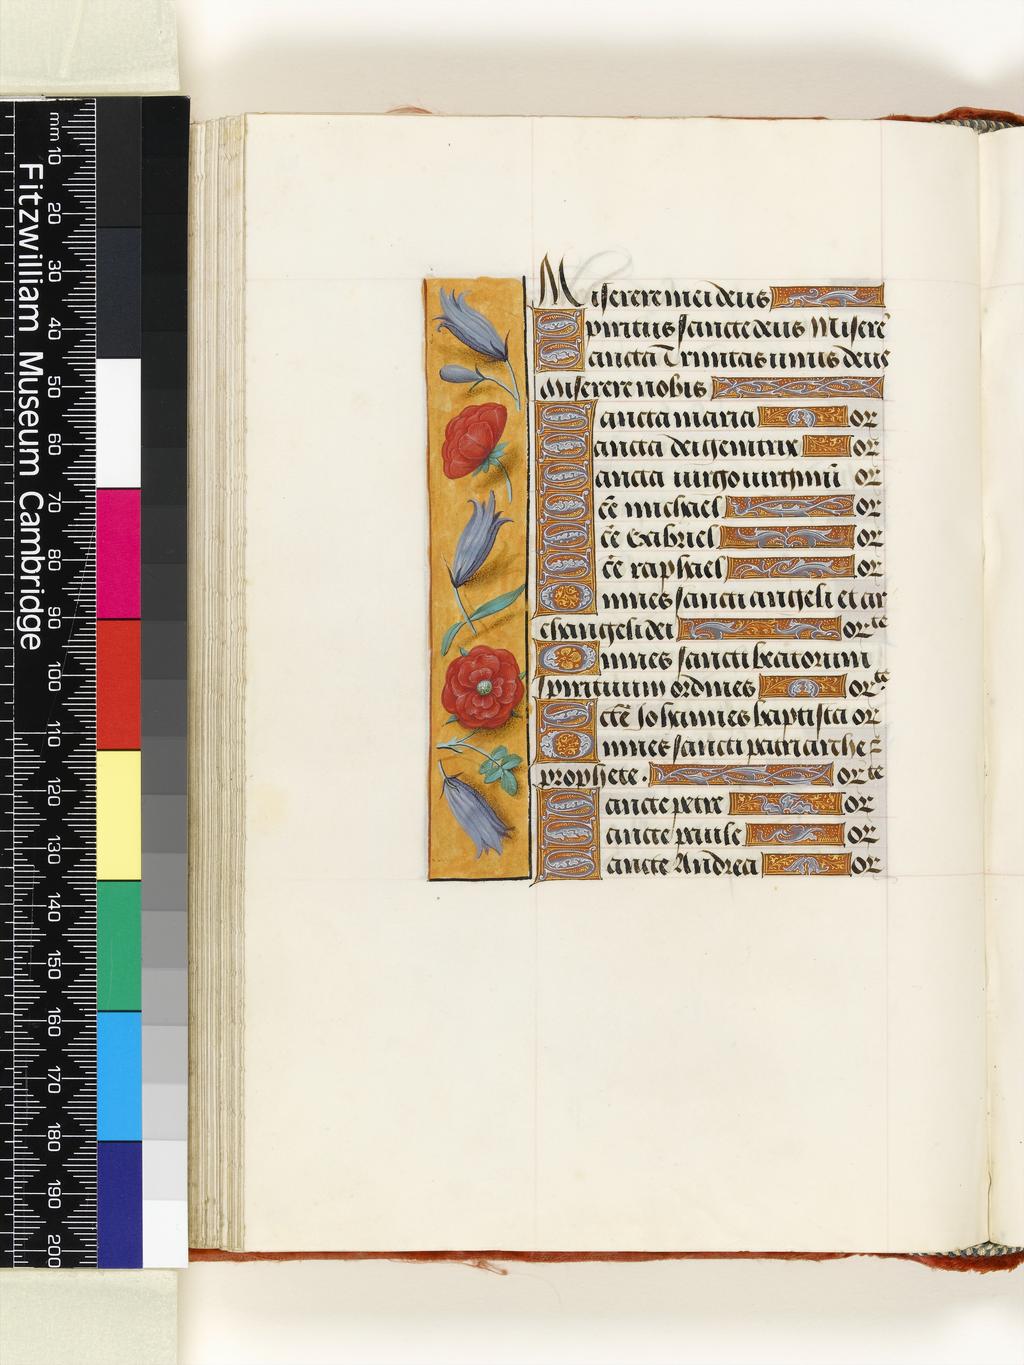 mm 10 20 30 40 50 60 70 80 90 100 110 120 130 140 150 160 170 180 190 200
Fitzwilliam Museum Cambridge
Miserere mei deus
Spiritus sancte deus Misere
Sancta Trinitas unus deus
Miserere nobis
Sancta maria or
Sancta dei genitrix or
Sancta virgo virginū or
Sc̄e michael or
Sc̄e Gabriel or
Sc̄e raphael or
Omnes sancti angeli et ar
changeli dei or te
Omnes sancti beatorum
spirituum ordines or te
Sctē Johannes baptista or
Omnes sancti patriarche &
prophete. or te
Sancte petre or
Sancte paule or
Sancte Andrea or